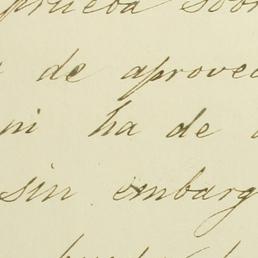 prueba sobr
de aprovec
ni ha de
sin embarg